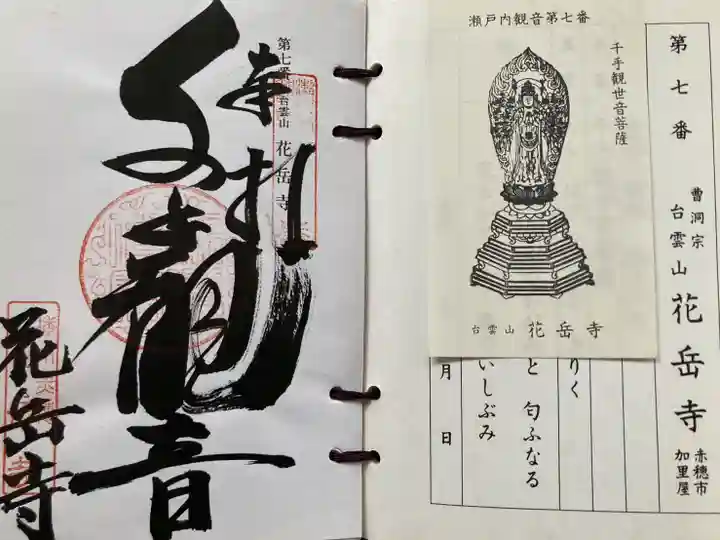 第七番
曹洞宗
台雲山 花岳寺
赤穂市
加里屋
瀬戸内観音第七番
千手観世音菩薩
台雲山 花岳寺
りく
と 匂ふなる
いしぶみ
月 日
第七番 台雲山 花岳寺
奉拝
音
花岳寺